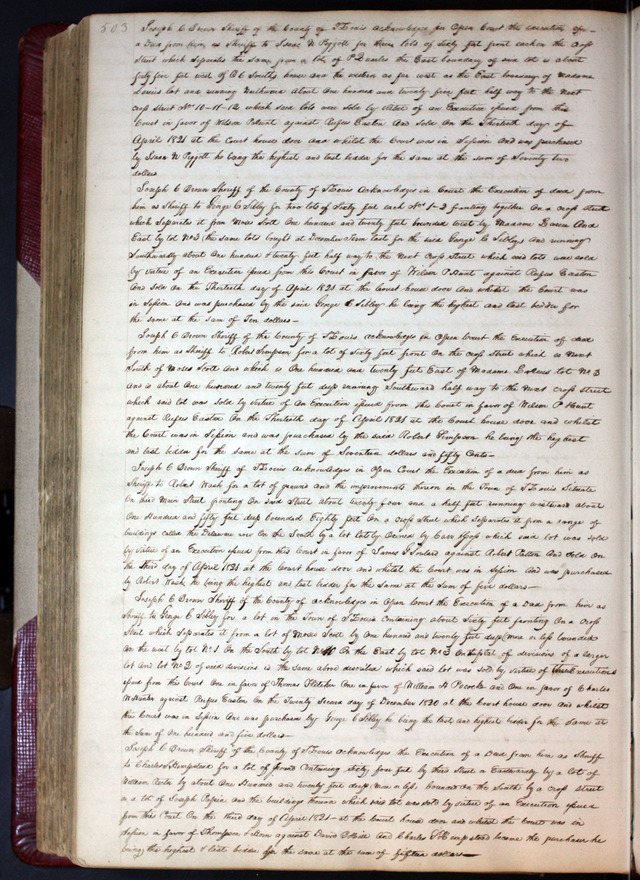 503
Joseph C Brown Sheriff of the County of St Louis acknowledges in Open Court the execution of
a Deed from him as Sheriff to Isaac N Piggott for three lots of sixty feet front each on the cross
Street which separates the same from a lot of P D the East boundary of one lot is about
forty five feet west of A C Smiths house and the western as far west as the East boundary of Madame
lot and running about One hundred and twenty five feet half way to the next
cross Street Nos 10-11-12 which said lots were sold by virtue of an Execution issued from this
Court in favor of Wilson P Hunt against Rufus Easton And Sold On the Thirtieth day of
April 1821 at the Court house door and whilst the Court was in Session And was purchased
by Isaac N Piggott he being the highest and last bidder for the same at the sum of Seventy two
dollars
Joseph C Brown Sheriff of the County of St Louis Acknowledges in Court the Execution of deed from
him as Sheriff to George C Sibley for two lots of Sixty feet each Nos 1-2 fronting together On a cross street
which separates it from Moses Scott One hundred and twenty feet bounded west by Madame And
East by lot No 3 (the same lots bought at December Term last for the said George C Sibley) and running
Southwardly about One hundred & twenty feet half way to the Next Cross Street which said lots was sold
by virtue of an Execution issued from this Court in favor of Wilson P Hunt against Rufus Easton
And Sold on the Thirtieth day of April 1821 at the Court house door And whilst the Court was
in Session And was purchased by the said George C Sibley he being the highest and last bidder for
the same at the Sum of Ten dollars—
Joseph C Brown Sheriff of the County of St Louis acknowledges in Open Court the Execution of deed
from him as Sheriff to Robert Simpson for a lot of Sixty feet front On the cross street which is Next
South of Moses Scott And which is One hundred and twenty feet East of Madame lot No 3
and is about One hundred and twenty feet deep running Southward half way to the Next cross street
which said lot was Sold by virtue of An Execution issued from this Court in favor of Wilson P Hunt
against Rufus Easton On the Thirtieth day of April 1821 at the Court house door and whilst
the Court was in Session and was purchased by the said Robert Simpson he being the highest
and last bidder for the same at the sum of Seventeen dollars and fifty Cents—
Joseph C Brown Sheriff of St Louis acknowledges in Open Court the Execution of a deed from him as
Sheriff to Robert Wash for a lot of ground and the improvements thereon in the Town of St Louis Situate
On Main Street fronting On said Street about twenty four and a half feet running westward about
One Hundred and fifty feet deep bounded On a Cross Street which Separates it from a range of
buildings called the row On the South by a lot lately Owned by which said lot was Sold
by virtue of an Execution issued from this Court in favor of James against Robert Patton And Sold On
the third day of April 1821 at the Court house door and whilst the Court was in Session And was purchased
by Robert Wash he being the highest and last bidder for the same at the Sum of five dollars—
Joseph C Brown Sheriff of the County of acknowledges in Open Court the Execution of a Deed from him as
Sheriff to George C Sibley for a lot in the Town of St Louis Containing about Sixty feet fronting On a cross
Street which Separates it from a lot of Moses Scott by One hundred and twenty feet deep (more or less bounded
On the west by lot No 1 On the South by lot No 10 On the East by lot No 3 On the plat of divisions of a larger
lot And lot No 2 of said divisions is the same above described which said lot was Sold by virtue of three Executions
issued from this Court One in favor of Thomas Fletcher One in favor of William H Pocock and One in favor of Charles
against Rufus Easton On the Twenty Second day of December 1820 at the Court house door and whilst
this Court was in Session And was purchased by George C Sibley he being the last and highest bidder for the same at
the Sum of One hundred and five dollars—
Joseph C Brown Sheriff of the County of St Louis acknowledges the Execution of a Deed from him as Sheriff
to Charles S Hempstead for a lot of ground Containing sixty four feet by third Street Eastwardly by a lot of
William by about One Hundred and twenty feet deep more or less bounded On the South by a cross street
a lot of Joseph Papin and the buildings thereon which said lot was sold by virtue of an Execution issued
from this Court On the third day of April 1821—at the Court house door and whilst the Court was in
Session in favor of Thompson against David and Charles S Hempstead became the purchaser he
being the highest & last bidder for the same at the sum of fifteen dollars—